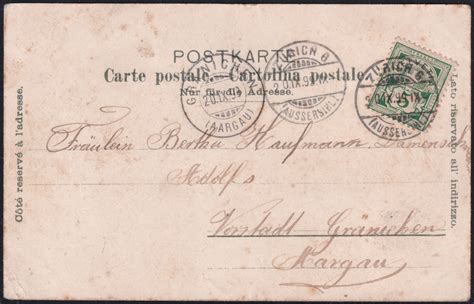 POSTKARTE
Carte postale. Cartolina postale.
Nur für die Adresse.
Côté reservé à l'adresse.
Lato riservato all' indirizzo.
GRÄNICHEN
20.IX.99
(AARGAU)
ZÜRICH 6
20.IX.99.IX
(AUSSERSIHL)
ZÜRICH 6
IX.99.IX
(AUSSERSIHL)
Fräulein Bertha Kaufmann Damensch.
Adolf's
Vorstadt Gränichen
Aargau